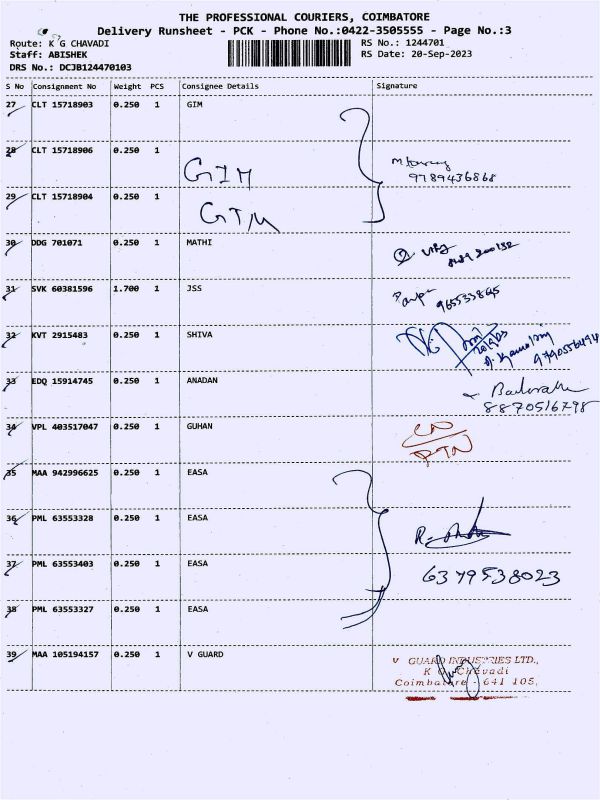 THE PROFESSIONAL COURIERS, COIMBATORE
Delivery Runsheet - PCK - Phone No.:0422-3505555 - Page No.:3
Route: K G CHAVADI RS No.: 1244701
Staff: ABISHEK RS Date: 20-Sep-2023
DRS No.: DCJB124470103
S No Consignment No Weight PCS Consignee Details Signature
27 CLT 15718903 0.250 1 GIM
28 CLT 15718906 0.250 1
GIM
9789436868
29 CLT 15718904 0.250 1
GIM
30 DDG 701071 0.250 1 MATHI
31 SVK 60381596 1.700 1 JSS
32 KVT 2915483 0.250 1 SHIVA
20/9/23
9790556494
33 EDQ 15914745 0.250 1 ANADAN
8870516798
34 VPL 403517047 0.250 1 GUHAN
RTN
35 MAA 942996625 0.250 1 EASA
36 PML 63553328 0.250 1 EASA
37 PML 63553403 0.250 1 EASA
6379538023
38 PML 63553327 0.250 1 EASA
39 MAA 105194157 0.250 1 V GUARD
V GUARD INDUSTRIES LTD.,
K G Chavadi
Coimbatore - 641 105.